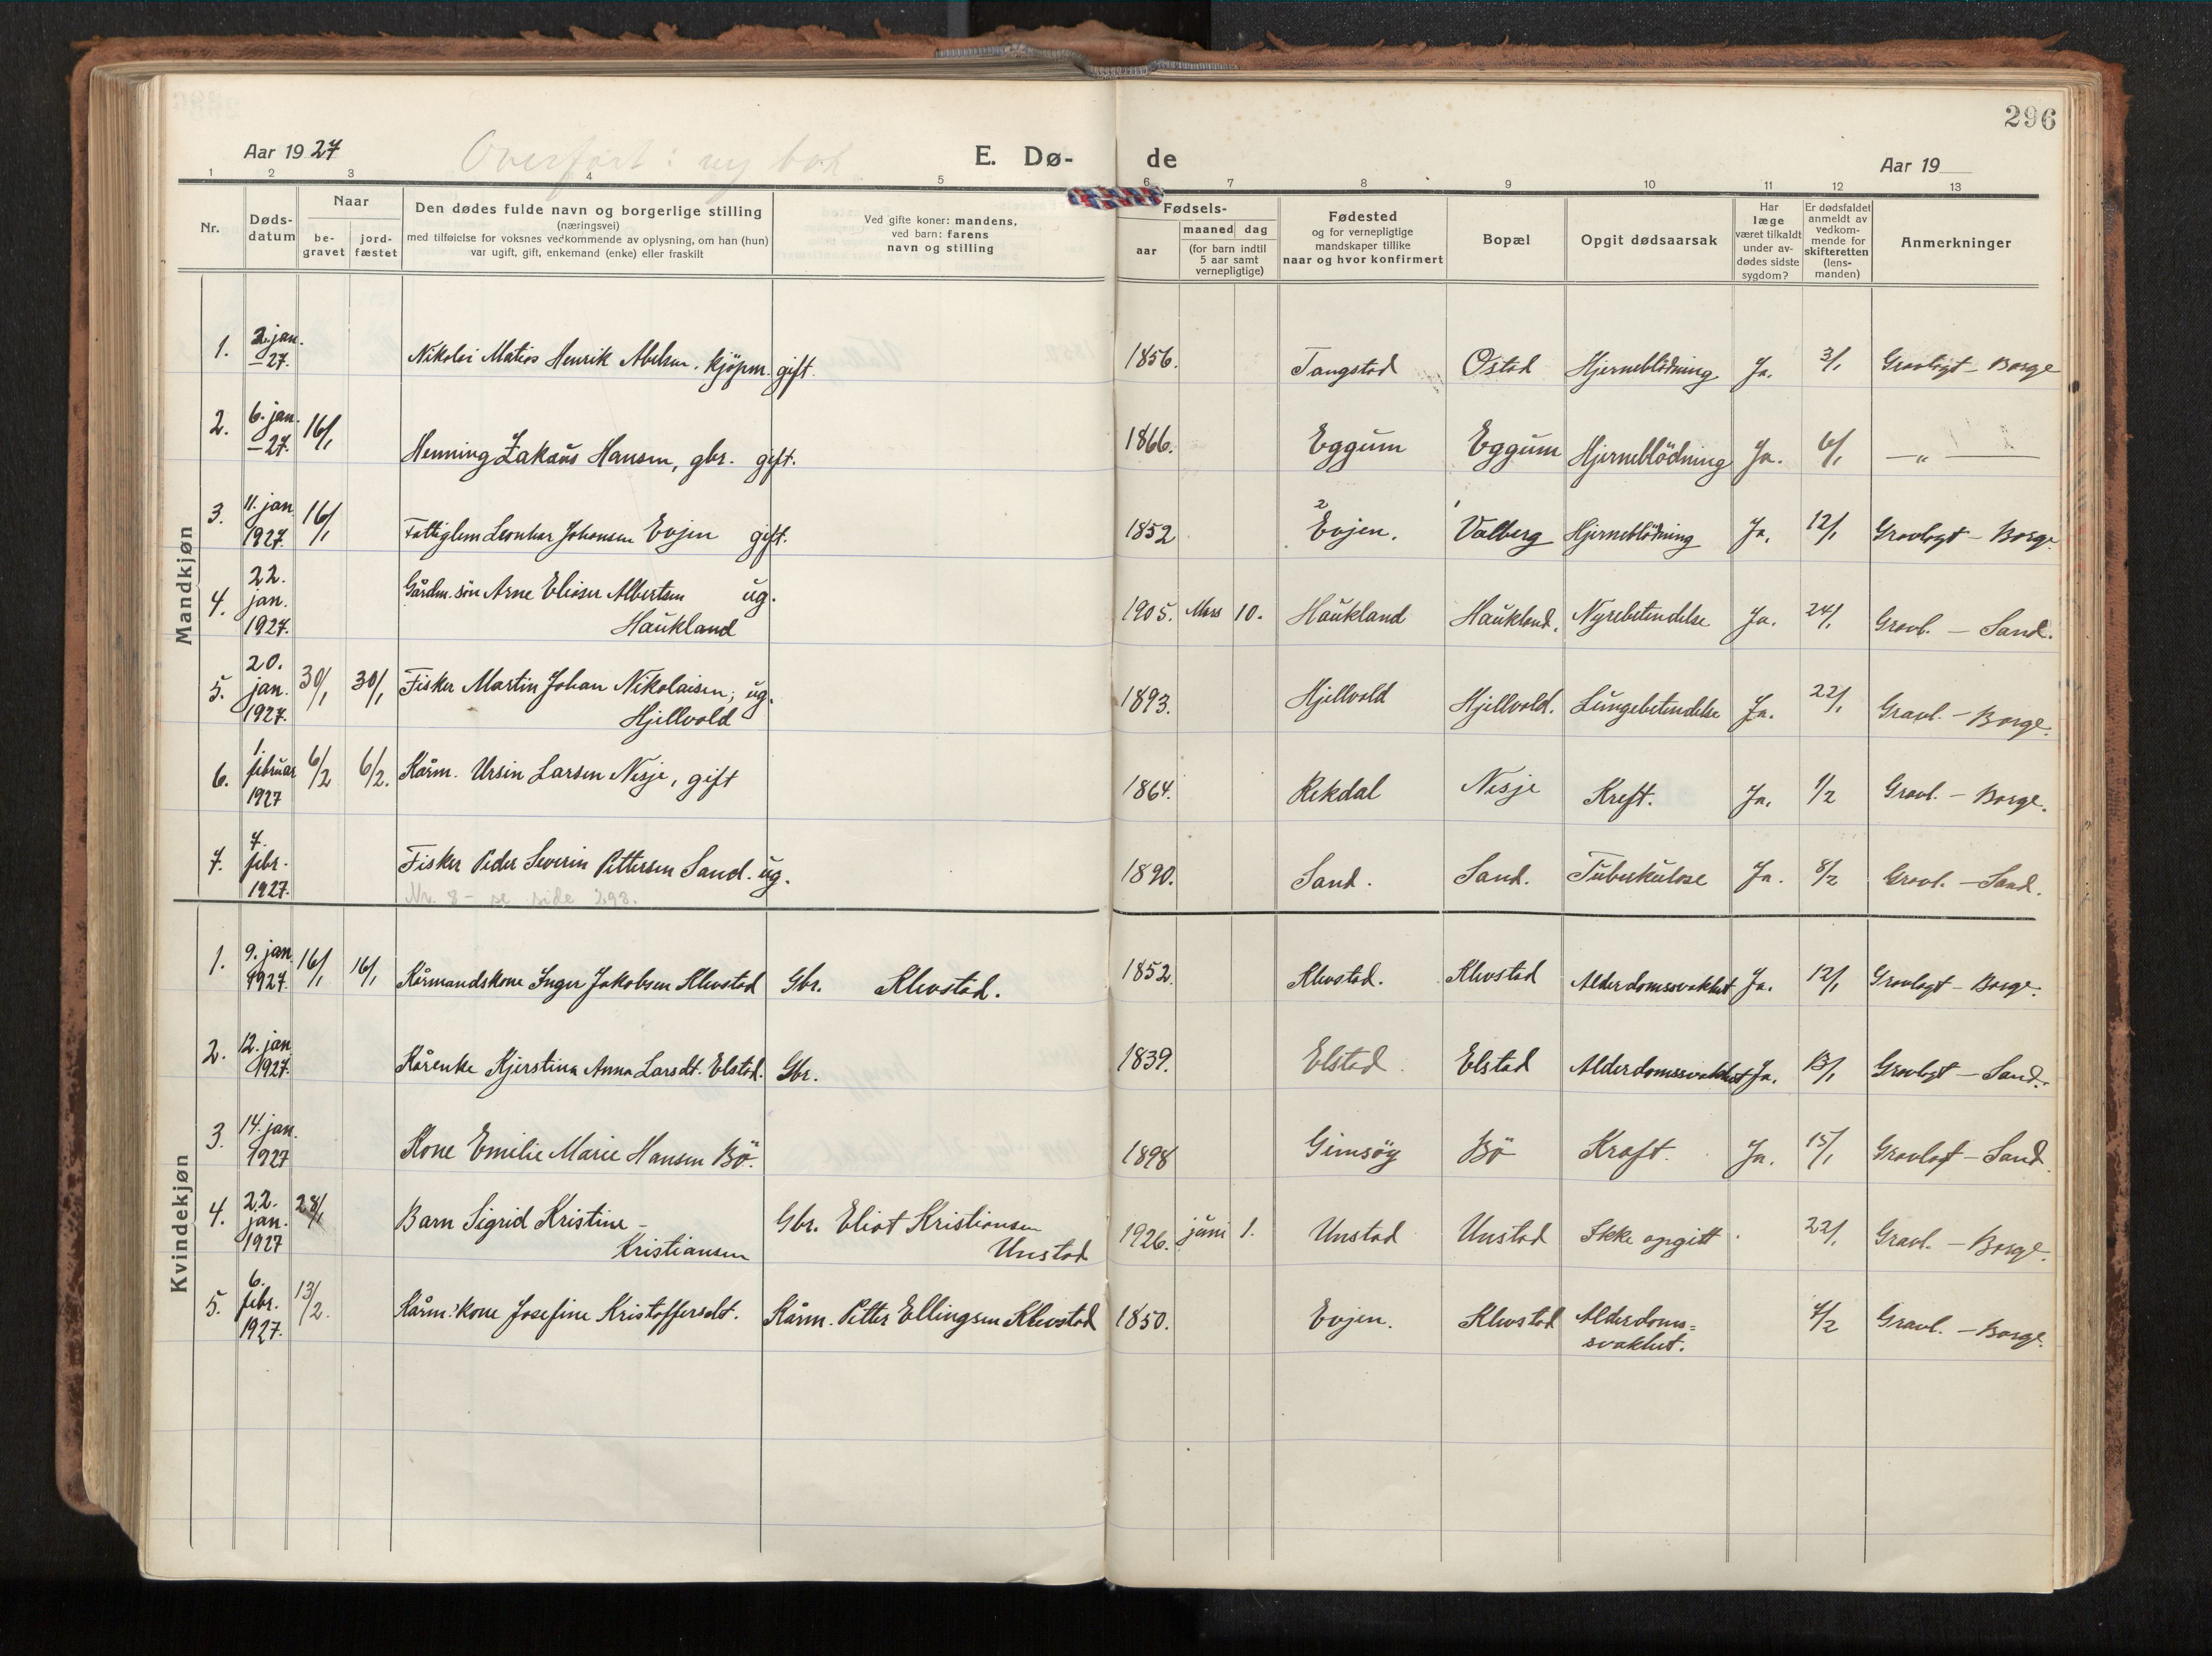 296
Aar 1927 Overført i ny bok E. Dø- de Aar 19
1 2 3 4 5 6 7 8 9 10 11 12 13
Nr.
Døds-
datum
Naar
be-
gravet
jord-
fæstet
Den dødes fulde navn og borgerlige stilling
(næringsvei)
med tilføielse for voksnes vedkommende av oplysning, om han (hun)
var ugift, gift, enkemand (enke) eller fraskilt
Ved gifte koner: mandens,
ved barn: farens
navn og stilling
Fødsels-
aar
maaned dag
(for barn indtil
5 aar samt
vernepligtige)
Fødested
og for vernepligtige
mandskaper tillike
naar og hvor konfirmert
Bopæl
Opgit dødsaarsak
Har
læge
været tilkaldt
under av-
dødes sidste
sygdom?
Er dødsfaldet
anmeldt av
vedkom-
mende for
skifteretten
(lens-
manden)
Anmerkninger
Mandkjøn
1. 2. jan. 27. Nikolai Matias Henrik Abelsen. kjöpm. gift. 1856. Tangstad Ostad Hjerneblödning Ja. 3/1 Gravlagt - Borge
2. 6. jan. 27. 16/1 Henning Zakäus Hansen, gbr. gift. 1866. Eggum Eggum Hjerneblödning Ja. 6/1 — " —
3. 11. jan. 1927. 16/1 Fattiglem Leonhar Johansen Evjen gift. 1852 Evjen. Valberg Hjerneblödning Ja. 12/1 Gravlagt - Borge.
4. 22. jan. 1927. Gårdm. sön Arne Elieser Albertsen ug. 1905. Mars 10. Haukland Haukland. Nyrebetendelse Ja. 24/1 Gravl. - Sand.
Haukland
5. 20. jan. 1927. 30/1 30/1 Fisker Martin Johan Nikolaisen, ug. 1893. Hjellvold Hjellvold. Lungebetendelse Ja. 22/1 Gravl. - Borge.
Hjellvold
6. 1. februar 1927 6/2 6/2. Kårm. Ursin Larsen Nesje, gift 1864. Rekdal Nesje Kreft. Ja. 1/2 Gravl. - Borge.
7. 7. febr. 1927. Fisker Peder Severin Pettersen Sand. ug. 1890. Sand. Sand. Tuberkulose Ja. 8/2 Gravl. - Sand.
Nr. 8 - se side 298.
Kvindekjøn
1. 9. jan. 1927. 16/1 16/1 Kårmandskone Inger Jakobsen Klevstad Gbr. Klevstad. 1852. Klevstad. Klevstad Alderdomssvakhet Ja. 12/1 Gravlagt - Borge.
2. 12. jan. 1927. Kårenke Kjerstina Anna Larsdt. Elstad. Gbr. 1839. Elstad. Elstad Alderdomssvakhet Ja. 13/1 Gravlagt - Sand.
3. 14. jan. 1927 Kone Emilie Marie Hansen Bö. 1898 Gimsöy Bö Kraft. Ja. 15/1 Gravlagt - Sand.
4. 22. jan. 1927 28/1 Barn Sigrid Kristine - Gbr. Eliot Kristiansen 1926. juni 1. Unstad Unstad Ikke opgitt 22/1 Gravl. - Borge.
Kristiansen Unstad
5. 6. febr. 1927. 13/2. Kårm. kone Josefine Kristoffersdt. Kårm. Petter Ellingsen Klevstad 1850. Evjen. Klevstad Alderdoms= 7/2 Gravl. - Borge.
svakhet.